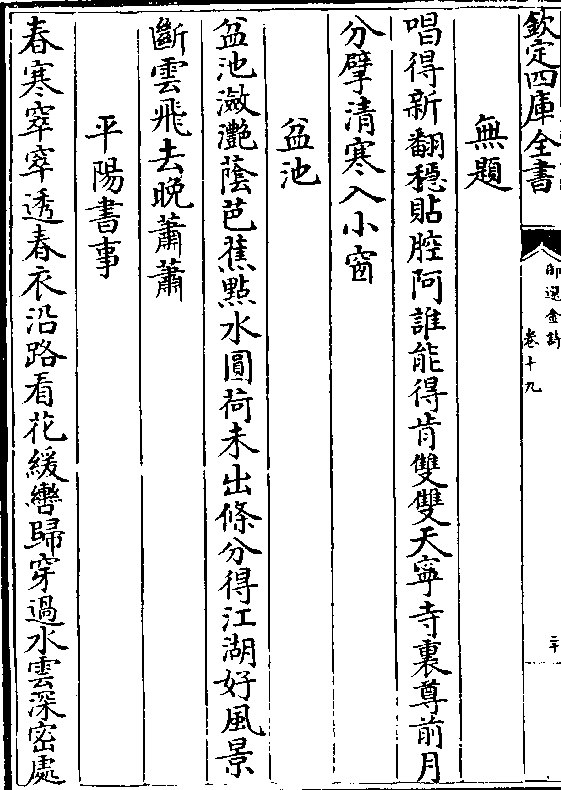 欽定四庫全書
御選金詩
卷十九
二十
無題
唱得新翻穩貼腔阿誰能得肯雙雙天寧寺裏尊前月
分擘清寒入小窗
盆池
盆池瀲灩蔭芭蕉點水圓荷未出條分得江湖好風景
斷雲飛去晚蕭蕭
平陽書事
春寒窣窣透春衣沿路看花緩轡歸穿過水雲深密處